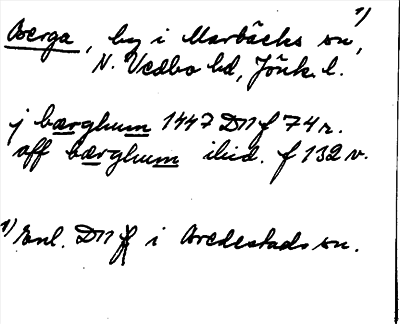 1)
Berga, by i Marbäcks sn,
N. Vedbo hd, Jönk. l.
j bærghum 1447 Dn f 74 r.
aff bærghum ibid. f 132 v.
1) Enl. Dn ff i Bredestads sn.